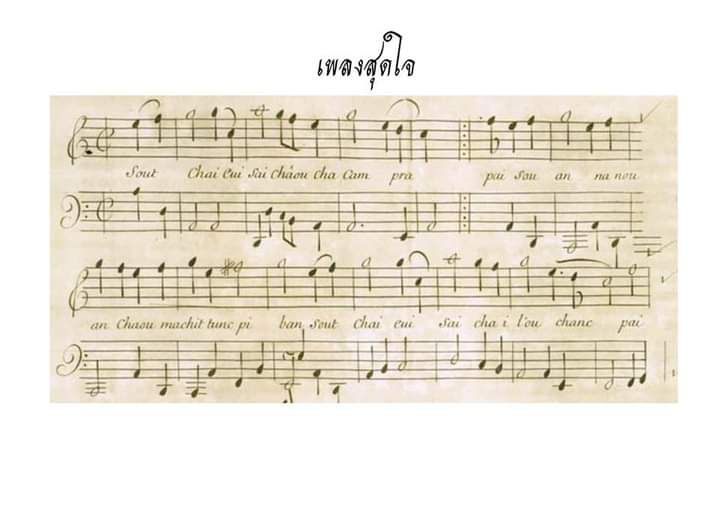 เพลงสุดใจ
Sout Chai Eui Sai Cháou Cha Cam pra pai Sou an na nou
an Chaou machit tunc pi ban Sout Chai eui Sai cha i l'ou chanc pai